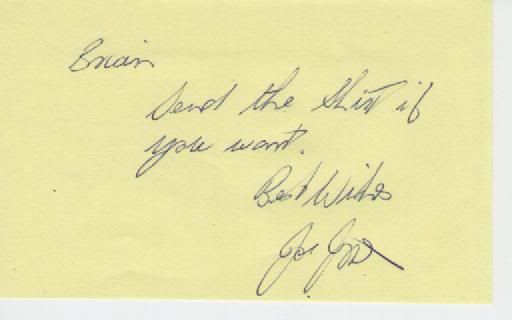 Brian
Send the shirt if
you want.
Best Wishes
Joe